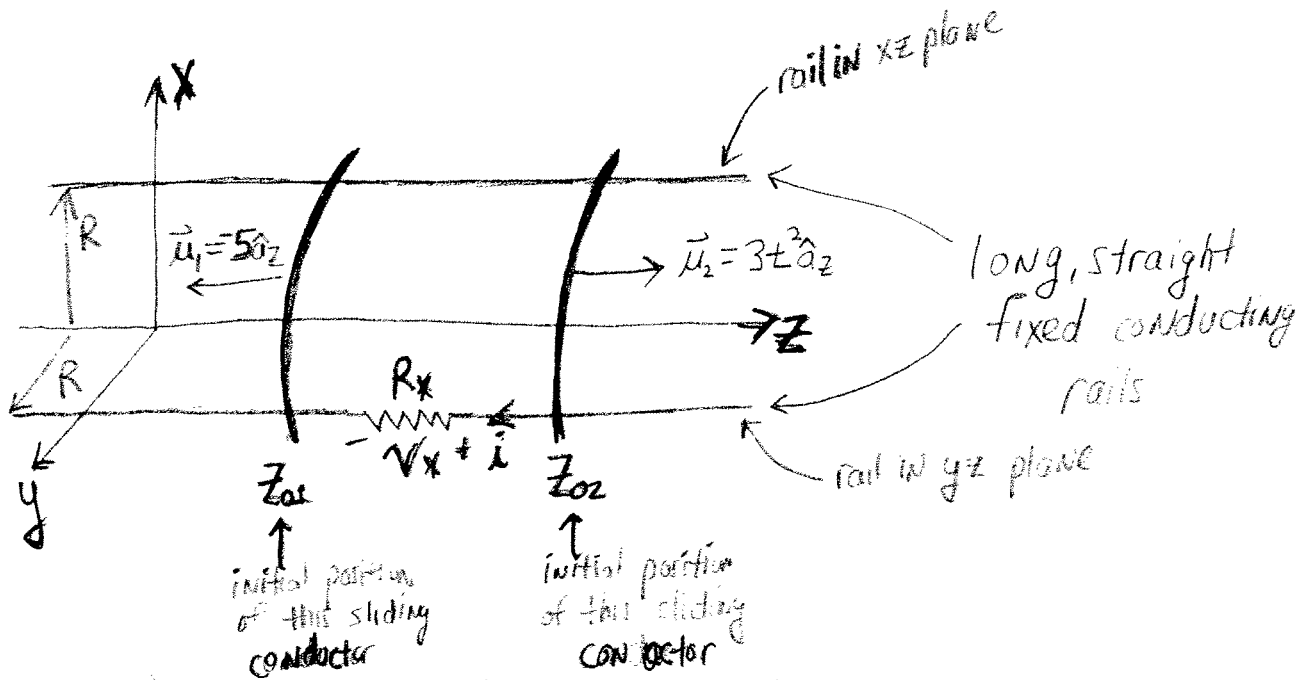 rail in xz plane
X
R
μ⃗₁=-5âz
μ⃗₂=3t²âz
long, straight
fixed conducting
rails
Z
R
Rx
- Vx + i
rail in yz plane
y
Z01
Z02
initial position
of this sliding
conductor
initial position
of this sliding
conductor